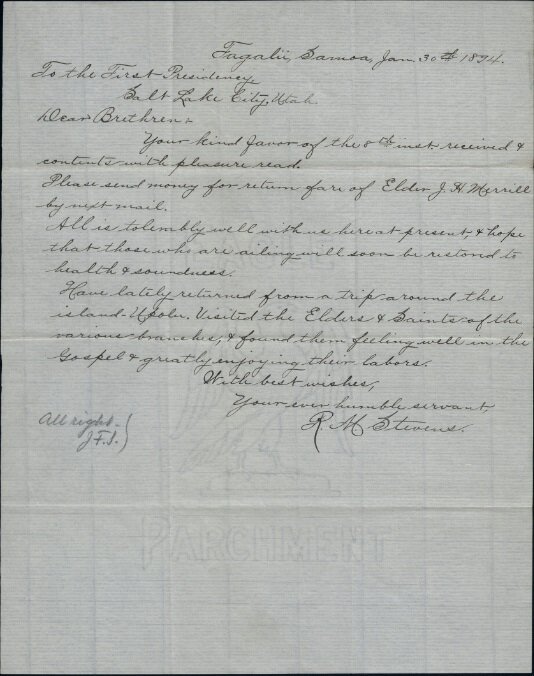 Fagalii, Samoa, Jan. 30th 1894.
To the First Presidency,
Salt Lake City, Utah.
Dear Brethren:
Your kind favor of the 8th inst. received &
contents with pleasure read.
Please send money for return fare of Elder J. H. Merrill
by next mail.
All is tolerably well with us here at present, & hope
that those who are ailing will soon be restored to
health & soundness.
Have lately returned from a trip around the
island Upolu. Visited the Elders & Saints of the
various branches, & found them feeling well in the
Gospel & greatly enjoying their labors.
With best wishes,
Your ever humble servant,
R. M Stevens.
All right.
J. F. S.
PARCHMENT